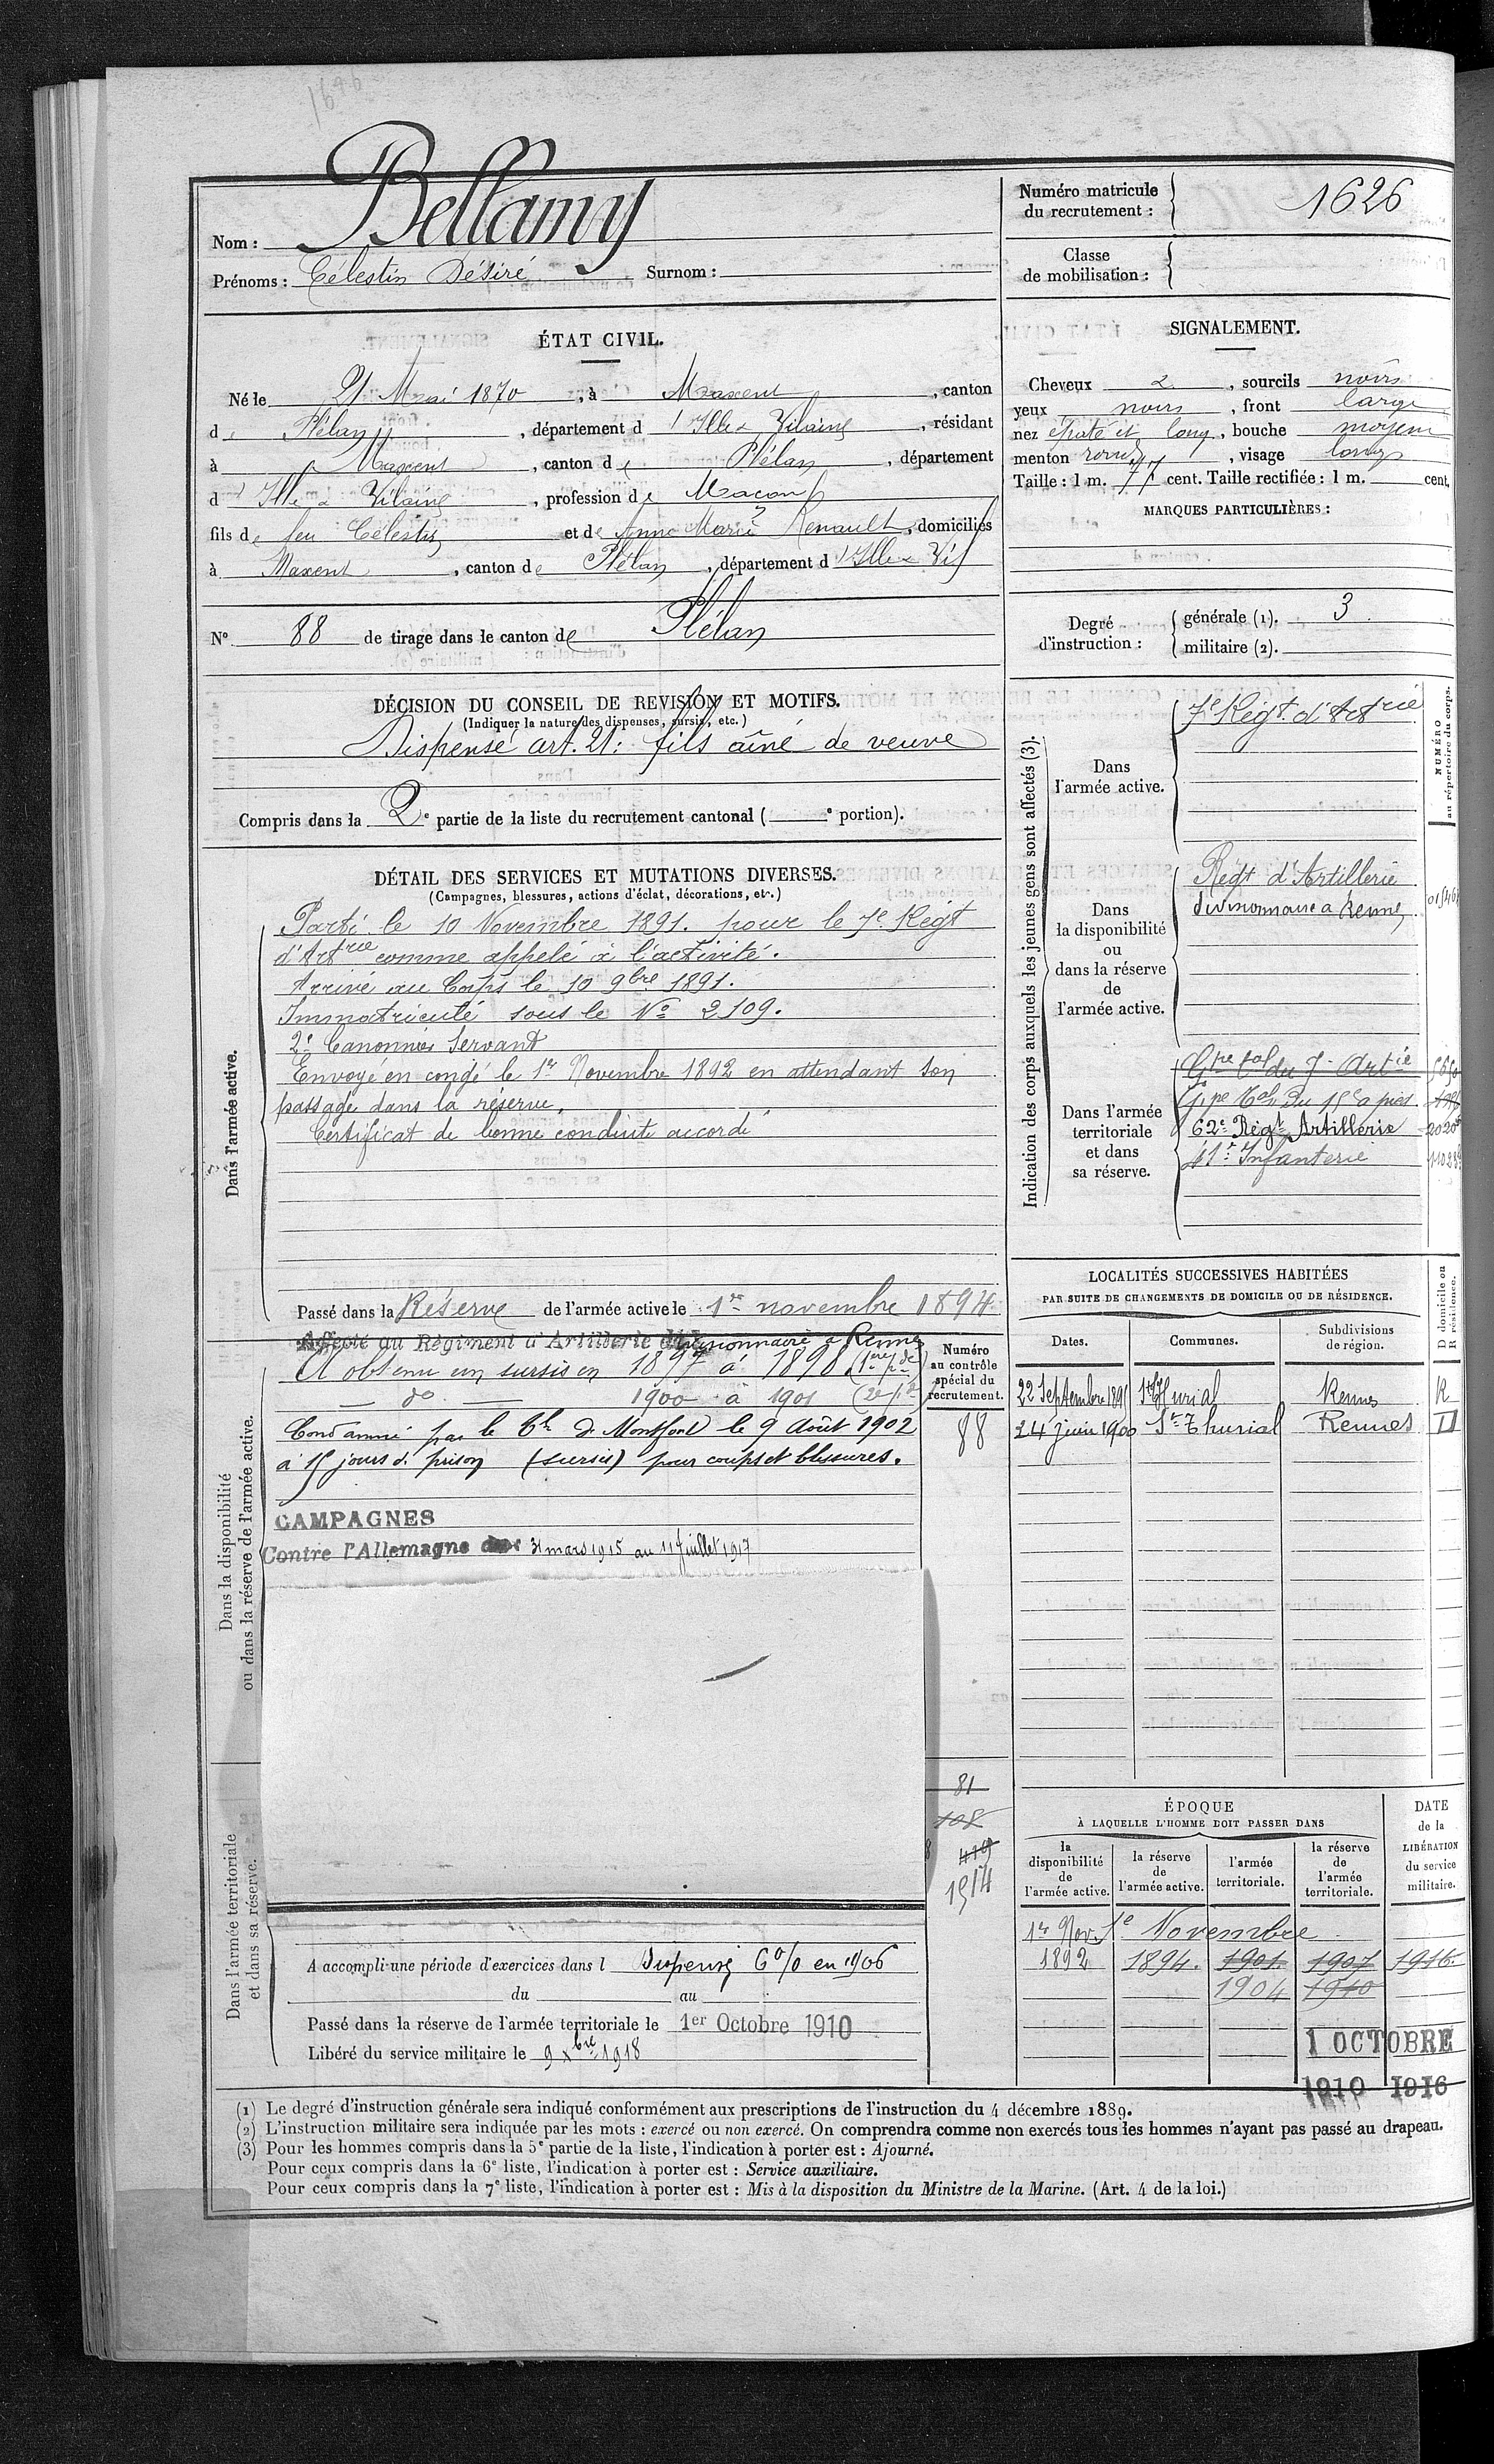 1626
Bellamy
Nom :
Prénoms : Célestin Désiré Surnom :
Numéro matricule
du recrutement : 1626
Classe
de mobilisation :
ÉTAT CIVIL.
Né le 21 Mai 1870, à Maxent, canton
de Plélan, département d'Ille & Vilaine, résidant
à Maxent, canton de Plélan, département
d'Ille & Vilaine, profession de Maçon
fils de feu Célestin et de Anne Marie Renault, domiciliés
à Maxent, canton de Plélan, département d'Ille & Vil
N° 88 de tirage dans le canton de Plélan
SIGNALEMENT.
Cheveux &, sourcils noirs
yeux noirs, front large
nez épaté et long, bouche moyenne
menton rond, visage long
Taille : 1 m. 77 cent. Taille rectifiée : 1 m. cent.
MARQUES PARTICULIÈRES :
Degré
d'instruction :
générale (1). 3
militaire (2).
DÉCISION DU CONSEIL DE REVISION ET MOTIFS.
(Indiquer la nature des dispenses, sursis, etc.)
Dispensé art. 21: fils aîné de veuve
Compris dans la 2e partie de la liste du recrutement cantonal ( e portion).
DÉTAIL DES SERVICES ET MUTATIONS DIVERSES.
(Campagnes, blessures, actions d'éclat, décorations, etc.)
Dans l'armée active.
Parti le 10 Novembre 1891. pour le 7e Régt
d'Artrie comme appelé à l'activité.
Arrivé au Corps le 10 9bre 1891.
Immatriculé sous le No 2109.
2e Canonnier Servant
Envoyé en congé le 1er Novembre 1892 en attendant son
passage dans la réserve.
Certificat de bonne conduite accordé
Passé dans la Réserve de l'armée active le 1er novembre 1894.
Indication des corps auxquels les jeunes gens sont affectés (3).
NUMÉRO
au répertoire du corps.
Dans
l'armée active.
7e Régt. d'Artrie
Dans
la disponibilité
ou
dans la réserve
de
l'armée active.
Régt d'Artillerie
divisionnaire à Rennes
Dans l'armée
territoriale
et dans
sa réserve.
Gpe tal du 7e Artie
Gpe tal du 15e à pied
62e Régt Artillerie
41e Infanterie
Dans la disponibilité
ou dans la réserve de l'armée active.
Affecté au Régiment d'Artillerie divisionnaire à Rennes
A obtenu un sursis en 1897 à 1898. (1re pde)
do 1900 à 1901 (2e pde)
Condamné par le tal de Montfort le 9 Août 1902
à 15 jours de prison (sursis) pour coups et blessures.
CAMPAGNES
Contre l'Allemagne du 31 mars 1915 au 11 juillet 1917
Numéro
au contrôle
spécial du
recrutement.
88
81
108
419
1514
LOCALITÉS SUCCESSIVES HABITÉES
PAR SUITE DE CHANGEMENTS DE DOMICILE OU DE RÉSIDENCE.
Dates. Communes. Subdivisions
de région.
D domicile ou
R résidence.
22 Septembre 1895 St Thurial Rennes R
24 juin 1900 St Thurial Rennes D
ÉPOQUE
À LAQUELLE L'HOMME DOIT PASSER DANS
la
disponibilité
de
l'armée active.
la réserve
de
l'armée active.
l'armée
territoriale.
la réserve
de
l'armée
territoriale.
DATE
de la
LIBÉRATION
du service
militaire.
1er Nov. 1e Novembre
1892 1894. 1901 1907 1916.
1904 1910
1 OCTOBRE
1910 1916
Dans l'armée territoriale
et dans sa réserve.
A accompli une période d'exercices dans l Dispensé 6 0/0 en 1906
du au
Passé dans la réserve de l'armée territoriale le 1er Octobre 1910
Libéré du service militaire le 9 xbre 1918
(1) Le degré d'instruction générale sera indiqué conformément aux prescriptions de l'instruction du 4 décembre 1889.
(2) L'instruction militaire sera indiquée par les mots : exercé ou non exercé. On comprendra comme non exercés tous les hommes n'ayant pas passé au drapeau.
(3) Pour les hommes compris dans la 5e partie de la liste, l'indication à porter est : Ajourné.
Pour ceux compris dans la 6e liste, l'indication à porter est : Service auxiliaire.
Pour ceux compris dans la 7e liste, l'indication à porter est : Mis à la disposition du Ministre de la Marine. (Art. 4 de la loi.)